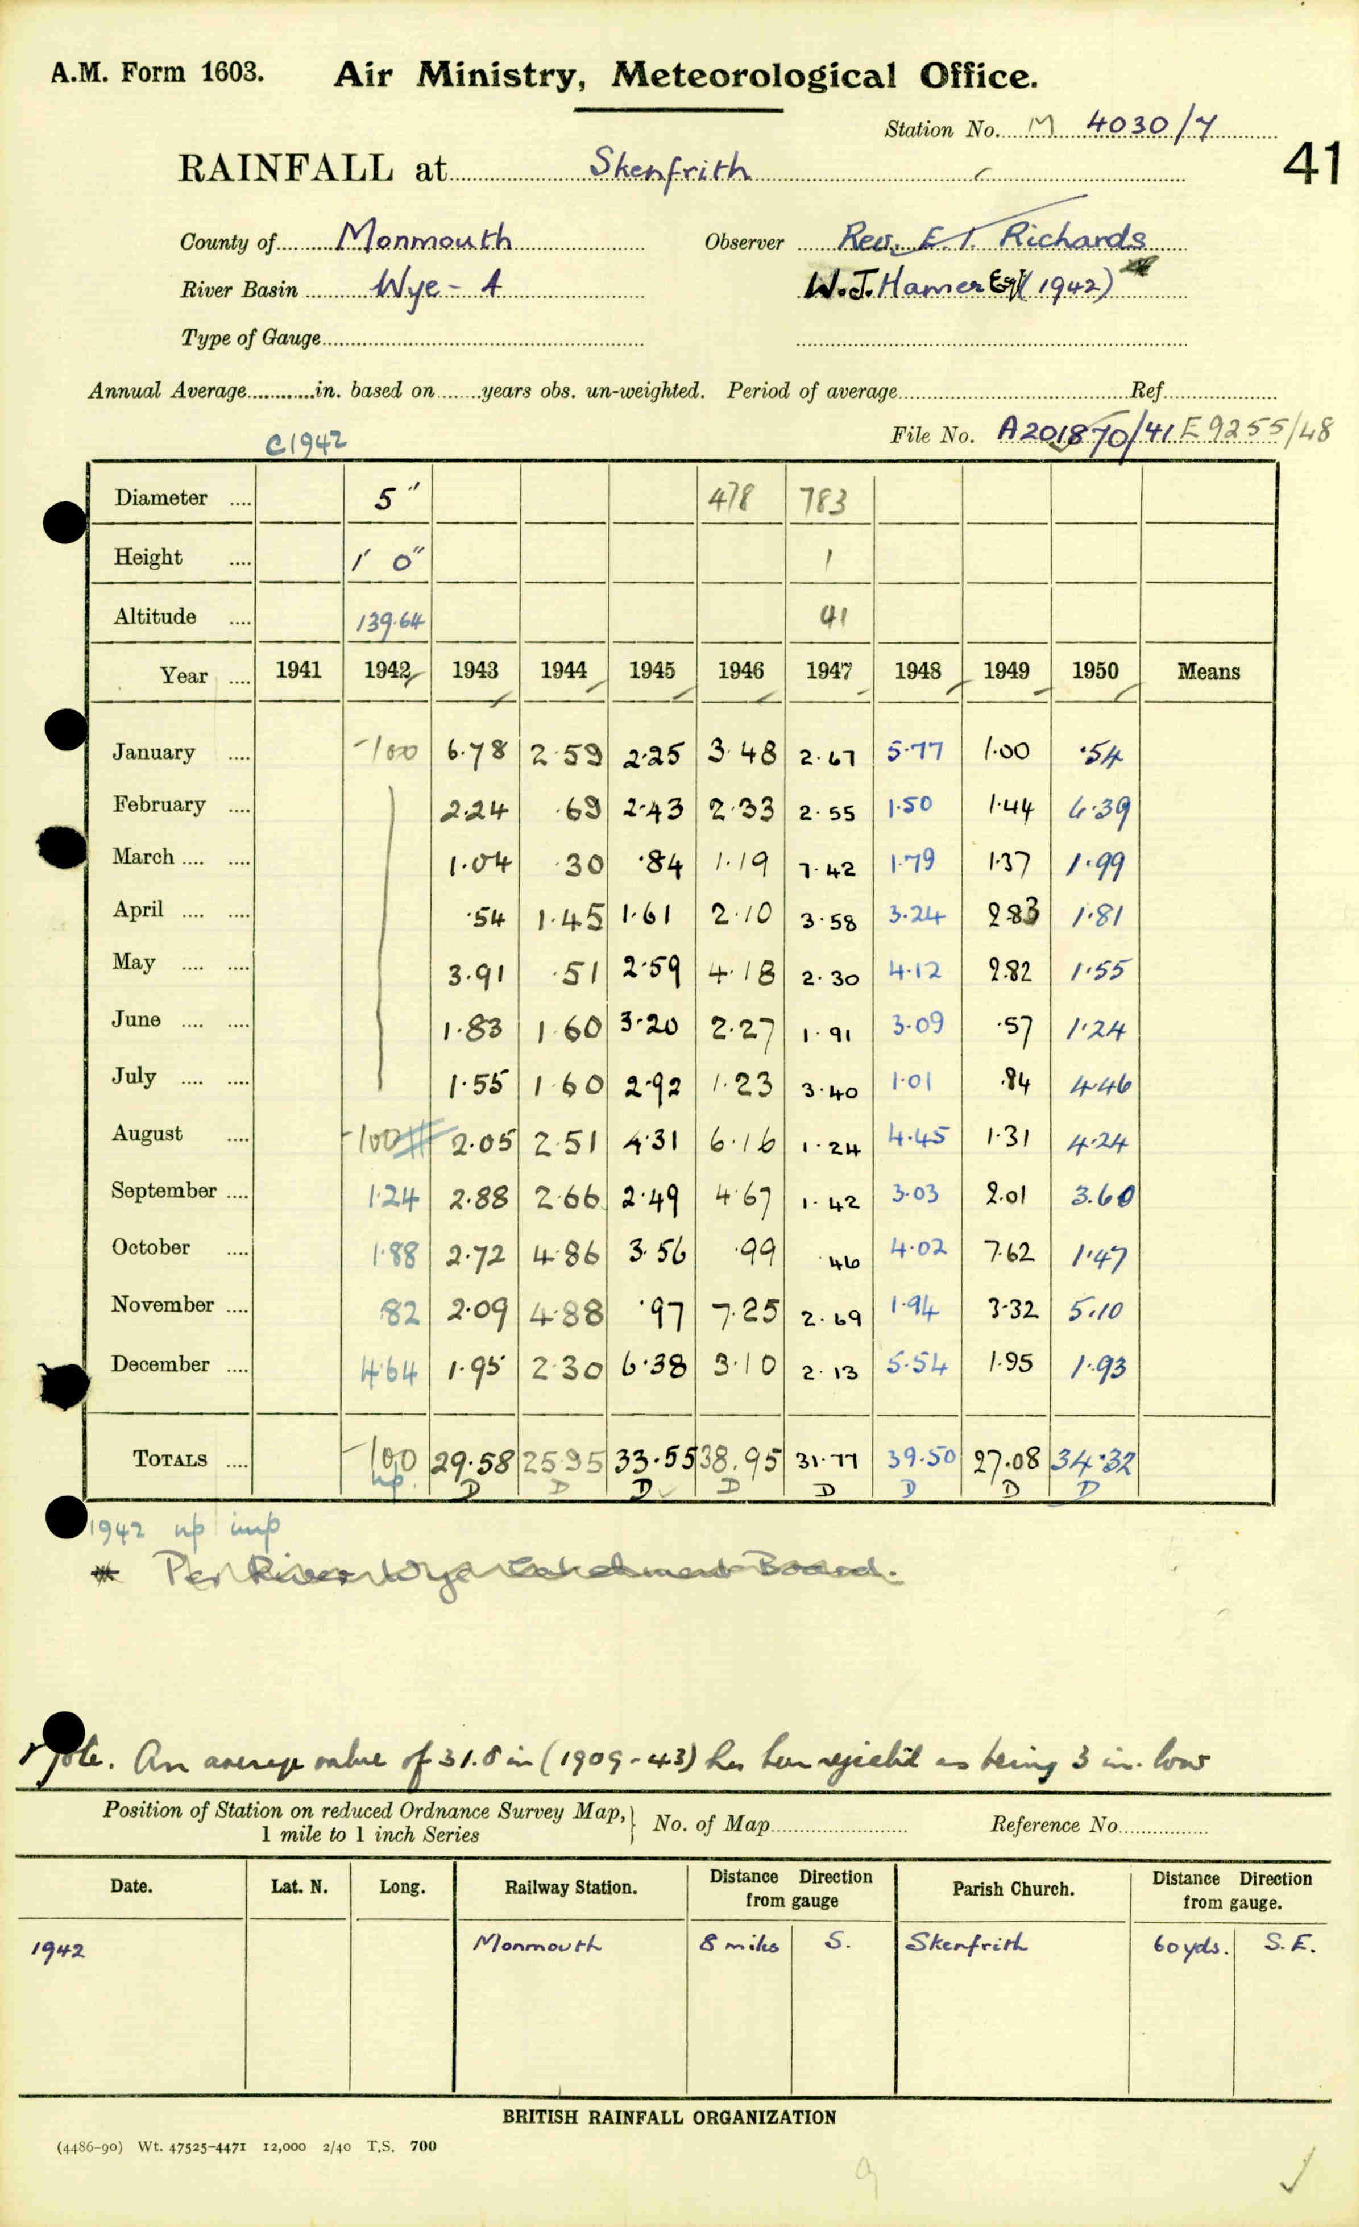 A.M. Form 1603. Air Ministry, Meteorological Office.
Station No. M 4030/7
41
RAINFALL at Skenfrith
County of Monmouth Observer Rev. E. T. Richards
River Basin Wye - A W.J. Hamer Esq (1942)
Type of Gauge
Annual Average in. based on years obs. un-weighted. Period of average Ref.
File No. A201870/41 E9255/48
C1942
Diameter .... 5" 478 783
Height .... 1' 0" 1
Altitude .... 139.64 41
Year .... 1941 1942 1943 1944 1945 1946 1947 1948 1949 1950 Means
January .... -100 6.78 2.59 2.25 3.48 2.67 5.77 1.00 .54
February .... 2.24 .69 2.43 2.33 2.55 1.50 1.44 6.39
March .... .... 1.04 .30 .84 1.19 7.42 1.79 1.37 1.99
April .... .... .54 1.45 1.61 2.10 3.58 3.24 2.83 1.81
May .... .... 3.91 .51 2.59 4.18 2.30 4.12 2.82 1.55
June .... .... 1.83 1.60 3.20 2.27 1.91 3.09 .57 1.24
July .... .... 1.55 1.60 2.92 1.23 3.40 1.01 .84 4.46
August .... -100 2.05 2.51 4.31 6.16 1.24 4.45 1.31 4.24
September .... 1.24 2.88 2.66 2.49 4.67 1.42 3.03 2.01 3.60
October .... 1.88 2.72 4.86 3.56 .99 .46 4.02 7.62 1.47
November .... .82 2.09 4.88 .97 7.25 2.69 1.94 3.32 5.10
December .... 4.64 1.95 2.30 6.38 3.10 2.13 5.54 1.95 1.93
TOTALS .... -100 29.58 25.95 33.55 38.95 31.77 39.50 27.08 34.32
np. D D D D D D D D
1942 np imp
* Per River Wye Catchment Board.
Note. An average value of 31.8 in (1909-43) has been rejected as being 3 in. low
Position of Station on reduced Ordnance Survey Map, 1 mile to 1 inch Series } No. of Map Reference No.
Date. Lat. N. Long. Railway Station. Distance Direction from gauge Parish Church. Distance Direction from gauge.
1942 Monmouth 8 miles S. Skenfrith 60 yds. S.E.
BRITISH RAINFALL ORGANIZATION
(4486-90) Wt. 47525-4471 12,000 2/40 T.S. 700